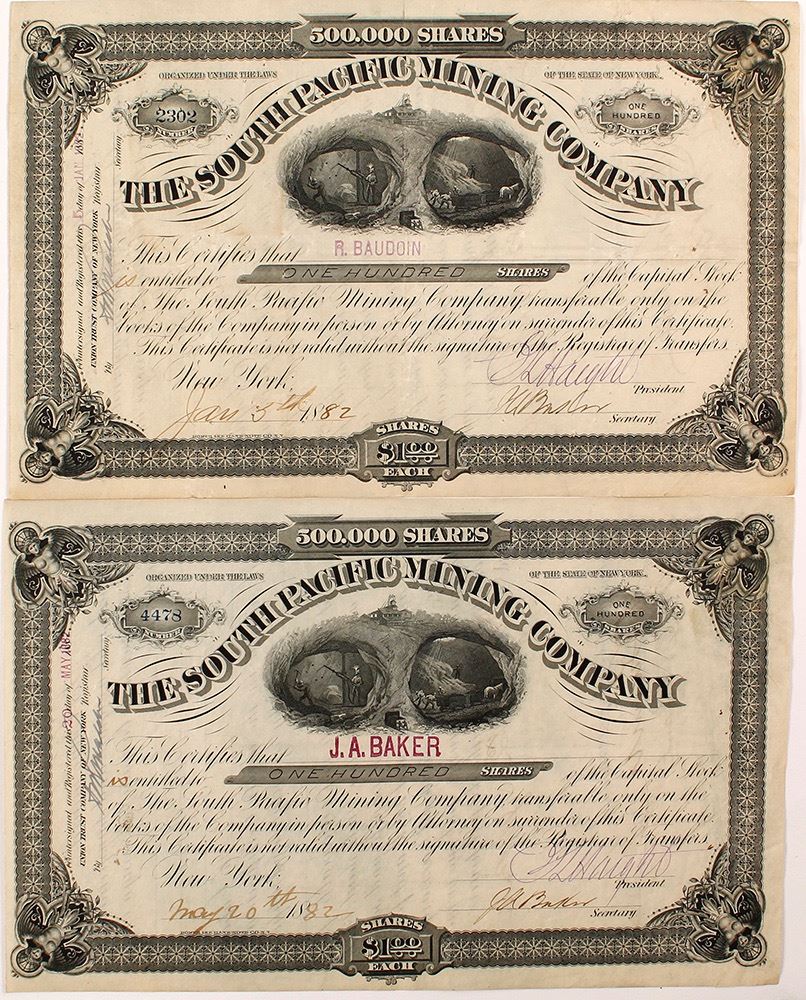 500.000 SHARES
ORGANIZED UNDER THE LAWS OF THE STATE OF NEW YORK.
THE SOUTH PACIFIC MINING COMPANY
2302
NUMBER
ONE HUNDRED
SHARES
This Certifies that R. BAUDOIN
is entitled to ONE HUNDRED SHARES of the Capital Stock
of The South Pacific Mining Company transferable only on the
books of the Company in person or by Attorney on surrender of this Certificate.
This Certificate is not valid without the signature of the Registrar of Transfers.
New York,
Jan 5th 1882
F L Haight
President
J A Baker
Secretary
SHARES
$1.00
EACH
Countersigned and Registered this 5 day of JAN 1882
UNION TRUST COMPANY OF NEW YORK Registrar
By Secretary
500.000 SHARES
ORGANIZED UNDER THE LAWS OF THE STATE OF NEW YORK.
THE SOUTH PACIFIC MINING COMPANY
4478
NUMBER
ONE HUNDRED
SHARES
This Certifies that J. A. BAKER
is entitled to ONE HUNDRED SHARES of the Capital Stock
of The South Pacific Mining Company transferable only on the
books of the Company in person or by Attorney on surrender of this Certificate.
This Certificate is not valid without the signature of the Registrar of Transfers.
New York,
May 20th 1882
F L Haight
President
J A Baker
Secretary
SHARES
$1.00
EACH
Countersigned and Registered this 20 day of MAY 1882
UNION TRUST COMPANY OF NEW YORK Registrar
By Secretary